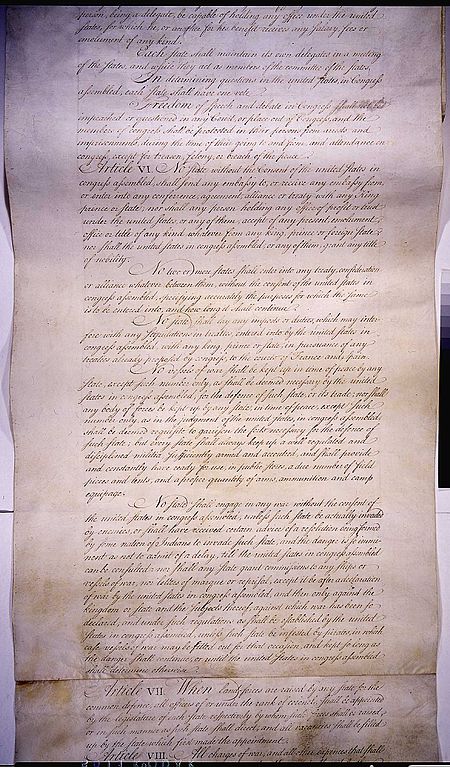 person, being a delegate, be capable of holding any office under the united
states, for which he, or another for his benefit receives any salary, fees or
emolument of any kind.
Each state shall maintain its own delegates in a meeting
of the states, and while they act as members of the committee of the states.
In determining questions in the united states, in Congress
assembled, each state shall have one vote.
Freedom of speech and debate in Congress shall not be
impeached or questioned in any Court, or place out of Congress, and the
members of congress shall be protected in their persons from arrests and
imprisonments, during the time of their going to and from, and attendance on
congress, except for treason, felony, or breach of the peace.
Article VI. No state without the Consent of the united states in
congress assembled, shall send any embassy to, or receive any embassy from,
or enter into any conference, agreement, alliance or treaty with any King
prince or state; nor shall any person holding any office of profit or trust
under the united states, or any of them, accept of any present, emolument,
office or title of any kind whatever from any king, prince or foreign state;
nor shall the united states in congress assembled, or any of them, grant any title
of nobility.
No two or more states shall enter into any treaty, confederation
or alliance whatever between them, without the consent of the united states in
congress assembled, specifying accurately the purposes for which the same
is to be entered into, and how long it shall continue.
No state shall lay any imposts or duties, which may inter-
fere with any stipulations in treaties, entered into by the united states in
congress assembled, with any king, prince or state, in pursuance of any
treaties already proposed by congress, to the courts of France and Spain.
No vessels of war shall be kept up in time of peace by any
state, except such number only, as shall be deemed necessary by the united
states in congress assembled, for the defence of such state, or its trade; nor shall
any body of forces be kept up by any state, in time of peace, except such
number only, as in the judgment of the united states, in congress assembled,
shall be deemed requisite to garrison the forts necessary for the defence of
such state; but every state shall always keep up a well regulated and
disciplined militia, sufficiently armed and accoutred, and shall provide
and constantly have ready for use, in public stores, a due number of field
pieces and tents, and a proper quantity of arms, ammunition and camp
equipage.
No state shall engage in any war without the consent of
the united states in congress assembled, unless such state be actually invaded
by enemies, or shall have received certain advice of a resolution being formed
by some nation of Indians to invade such state, and the danger is so immi-
nent as not to admit of a delay, till the united states in congress assembled
can be consulted: nor shall any state grant commissions to any ships or
vessels of war, nor letters of marque or reprisal, except it be after a declaration
of war by the united states in congress assembled, and then only against the
kingdom or state and the subjects thereof, against which war has been so
declared, and under such regulations as shall be established by the united
states in congress assembled, unless such state be infested by pirates, in which
case vessels of war may be fitted out for that occasion, and kept so long as
the danger shall continue, or until the united states in congress assembled
shall determine otherwise.
Article VII. When land-forces are raised by any state for the
common defence, all officers of or under the rank of colonel, shall be appointed
by the legislature of each state respectively by whom such forces shall be raised,
or in such manner as such state shall direct, and all vacancies shall be filled
up by the state which first made the appointment.
Article VIII. All charges of war, and all other expences that shall